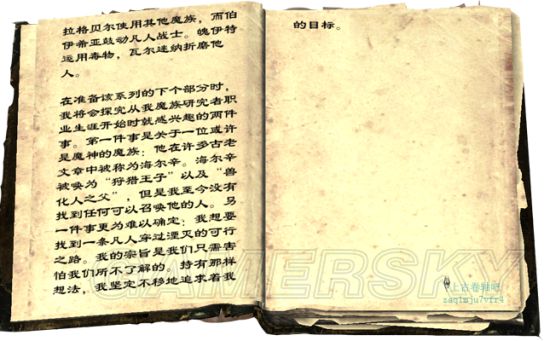 拉格贝尔使用其他魔族，而伯
伊希亚鼓动凡人战士。魄伊特
运用毒物，瓦尔迷纳折磨他
人。
在准备该系列的下个部分时，
我将会探究从我魔族研究者职
业生涯开始时就感兴趣的两件
事。第一件事是关于一位或许
是魔神的魔族；他在许多古老
文章中被称为海尔辛。海尔辛
被唤为“狩猎王子”以及“兽
化人之父”，但是我至今没有
找到任何可以召唤他的人。另
一件事更为难以确定；我想要
找到一条凡人穿过湮灭的可行
之路。我的宗旨是我们只需害
怕我们所不了解的。持有那样
想法，我坚定不移地追求着我
的目标。
GAMERSKY
上古卷轴吧
zaqtmju7vfr4